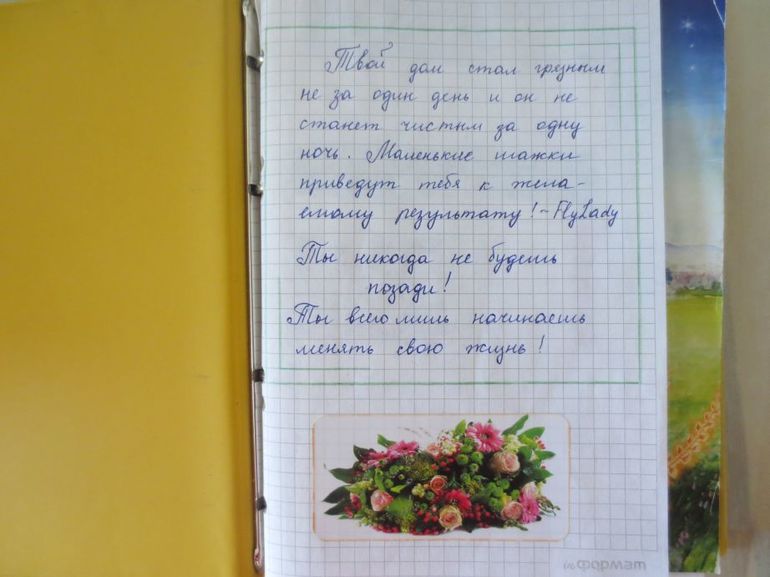 Твой дом стал грязным
не за один день и он не
станет чистым за одну
ночь. Маленькие шажки
приведут тебя к жела-
емому результату! - FlyLady
Ты никогда не будешь
позади!
Ты всего лишь начинаешь
менять свою жизнь!
формат